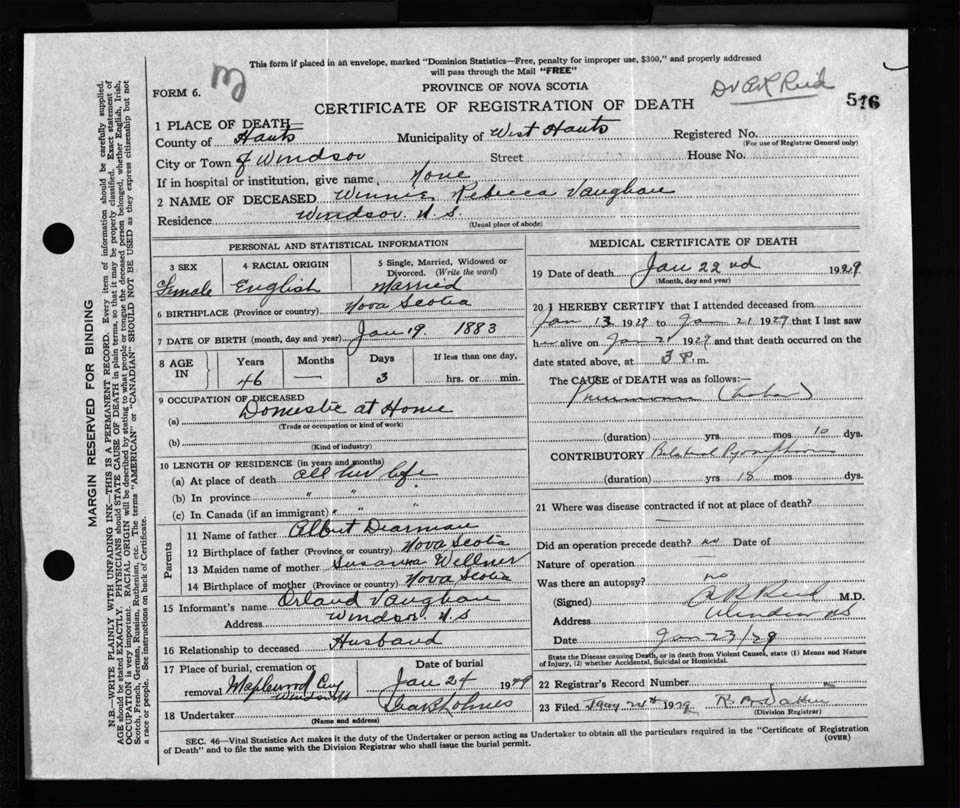 This form if placed in an envelope, marked "Dominion Statistics—Free, penalty for improper use, $300," and properly addressed
will pass through the Mail "FREE"
FORM 6.
PROVINCE OF NOVA SCOTIA
Dr Reid
CERTIFICATE OF REGISTRATION OF DEATH
516
1 PLACE OF DEATH—
County of Hants Municipality of West Hants Registered No.
(For use of Registrar General only)
City or Town of Windsor Street House No.
If in hospital or institution, give name None
2 NAME OF DECEASED Winnie Rebecca Vaughan
Residence Windsor N.S.
(Usual place of abode)
PERSONAL AND STATISTICAL INFORMATION
3 SEX 4 RACIAL ORIGIN 5 Single, Married, Widowed or
Divorced. (Write the word)
Female English Married
6 BIRTHPLACE (Province or country) Nova Scotia
7 DATE OF BIRTH (month, day and year) Jan 19. 1883
8 AGE IN Years Months Days If less than one day,
46 — 3 hrs. or min.
9 OCCUPATION OF DECEASED
(a) Domestic at Home
(Trade or occupation or kind of work)
(b)
(Kind of industry)
10 LENGTH OF RESIDENCE (in years and months)
(a) At place of death all her life
(b) In province " " "
(c) In Canada (if an immigrant) " " "
Parents
11 Name of father Albert Dearman
12 Birthplace of father (Province or country) Nova Scotia
13 Maiden name of mother Susanna Wellner
14 Birthplace of mother (Province or country) Nova Scotia
15 Informant's name Orland Vaughan
Address Windsor N.S
16 Relationship to deceased Husband
17 Place of burial, cremation or Date of burial
removal Maplewood Cey Windsor NS Jan 24 1929
18 Undertaker
(Name and address)
MEDICAL CERTIFICATE OF DEATH
19 Date of death Jan 22nd 1929
(Month, day and year)
20 I HEREBY CERTIFY that I attended deceased from
Jan 13 1929 to Jan 21 1929 that I last saw
h alive on Jan 21 1929 and that death occurred on the
date stated above, at 3 P. m.
The CAUSE of DEATH was as follows:—
Pneumonia (Lobar)
(duration) yrs mos 10 dys.
CONTRIBUTORY Bilateral
(duration) yrs 18 mos dys.
21 Where was disease contracted if not at place of death?
Did an operation precede death? no Date of
Nature of operation
Was there an autopsy? no
(Signed) Reid M.D.
Address Windsor NS
Date Jan 23/29
State the Disease causing Death, or in death from Violent Causes, state (1) Means and Nature
of Injury, (2) whether Accidental, Suicidal or Homicidal.
22 Registrar's Record Number
23 Filed Jany 24th 1929
(Division Registrar)
SEC. 46—Vital Statistics Act makes it the duty of the Undertaker or person acting as Undertaker to obtain all the particulars required in the "Certificate of Registration
of Death" and to file the same with the Division Registrar who shall issue the burial permit. (OVER)
MARGIN RESERVED FOR BINDING
N.B.—WRITE PLAINLY WITH UNFADING INK—THIS IS A PERMANENT RECORD. Every item of information should be carefully supplied.
AGE should be stated EXACTLY. PHYSICIANS should STATE CAUSE OF DEATH in plain terms, so that it may be properly classified. Exact statement of
OCCUPATION is very important. RACIAL ORIGIN will be described by stating to what people or tongue the deceased person belonged, whether English, Irish,
Scotch, French, German, Russian, Ruthenian, etc. The terms "AMERICAN" or "CANADIAN" SHOULD NOT BE USED as they express citizenship but not
a race or people. See instructions on back of Certificate.